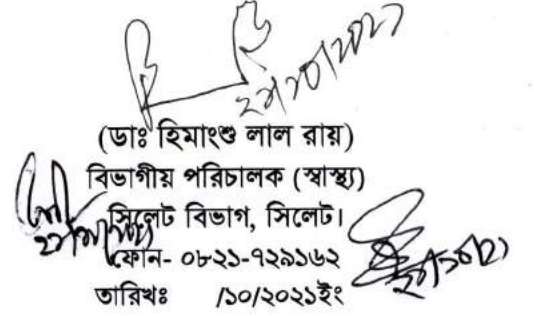 (ডাঃ হিমাংশু লাল রায়)
বিভাগীয় পরিচালক (স্বাস্থ্য)
সিলেট বিভাগ, সিলেট।
ফোন- ০৮২১-৭২৯১৬২
তারিখঃ /১০/২০২১ইং